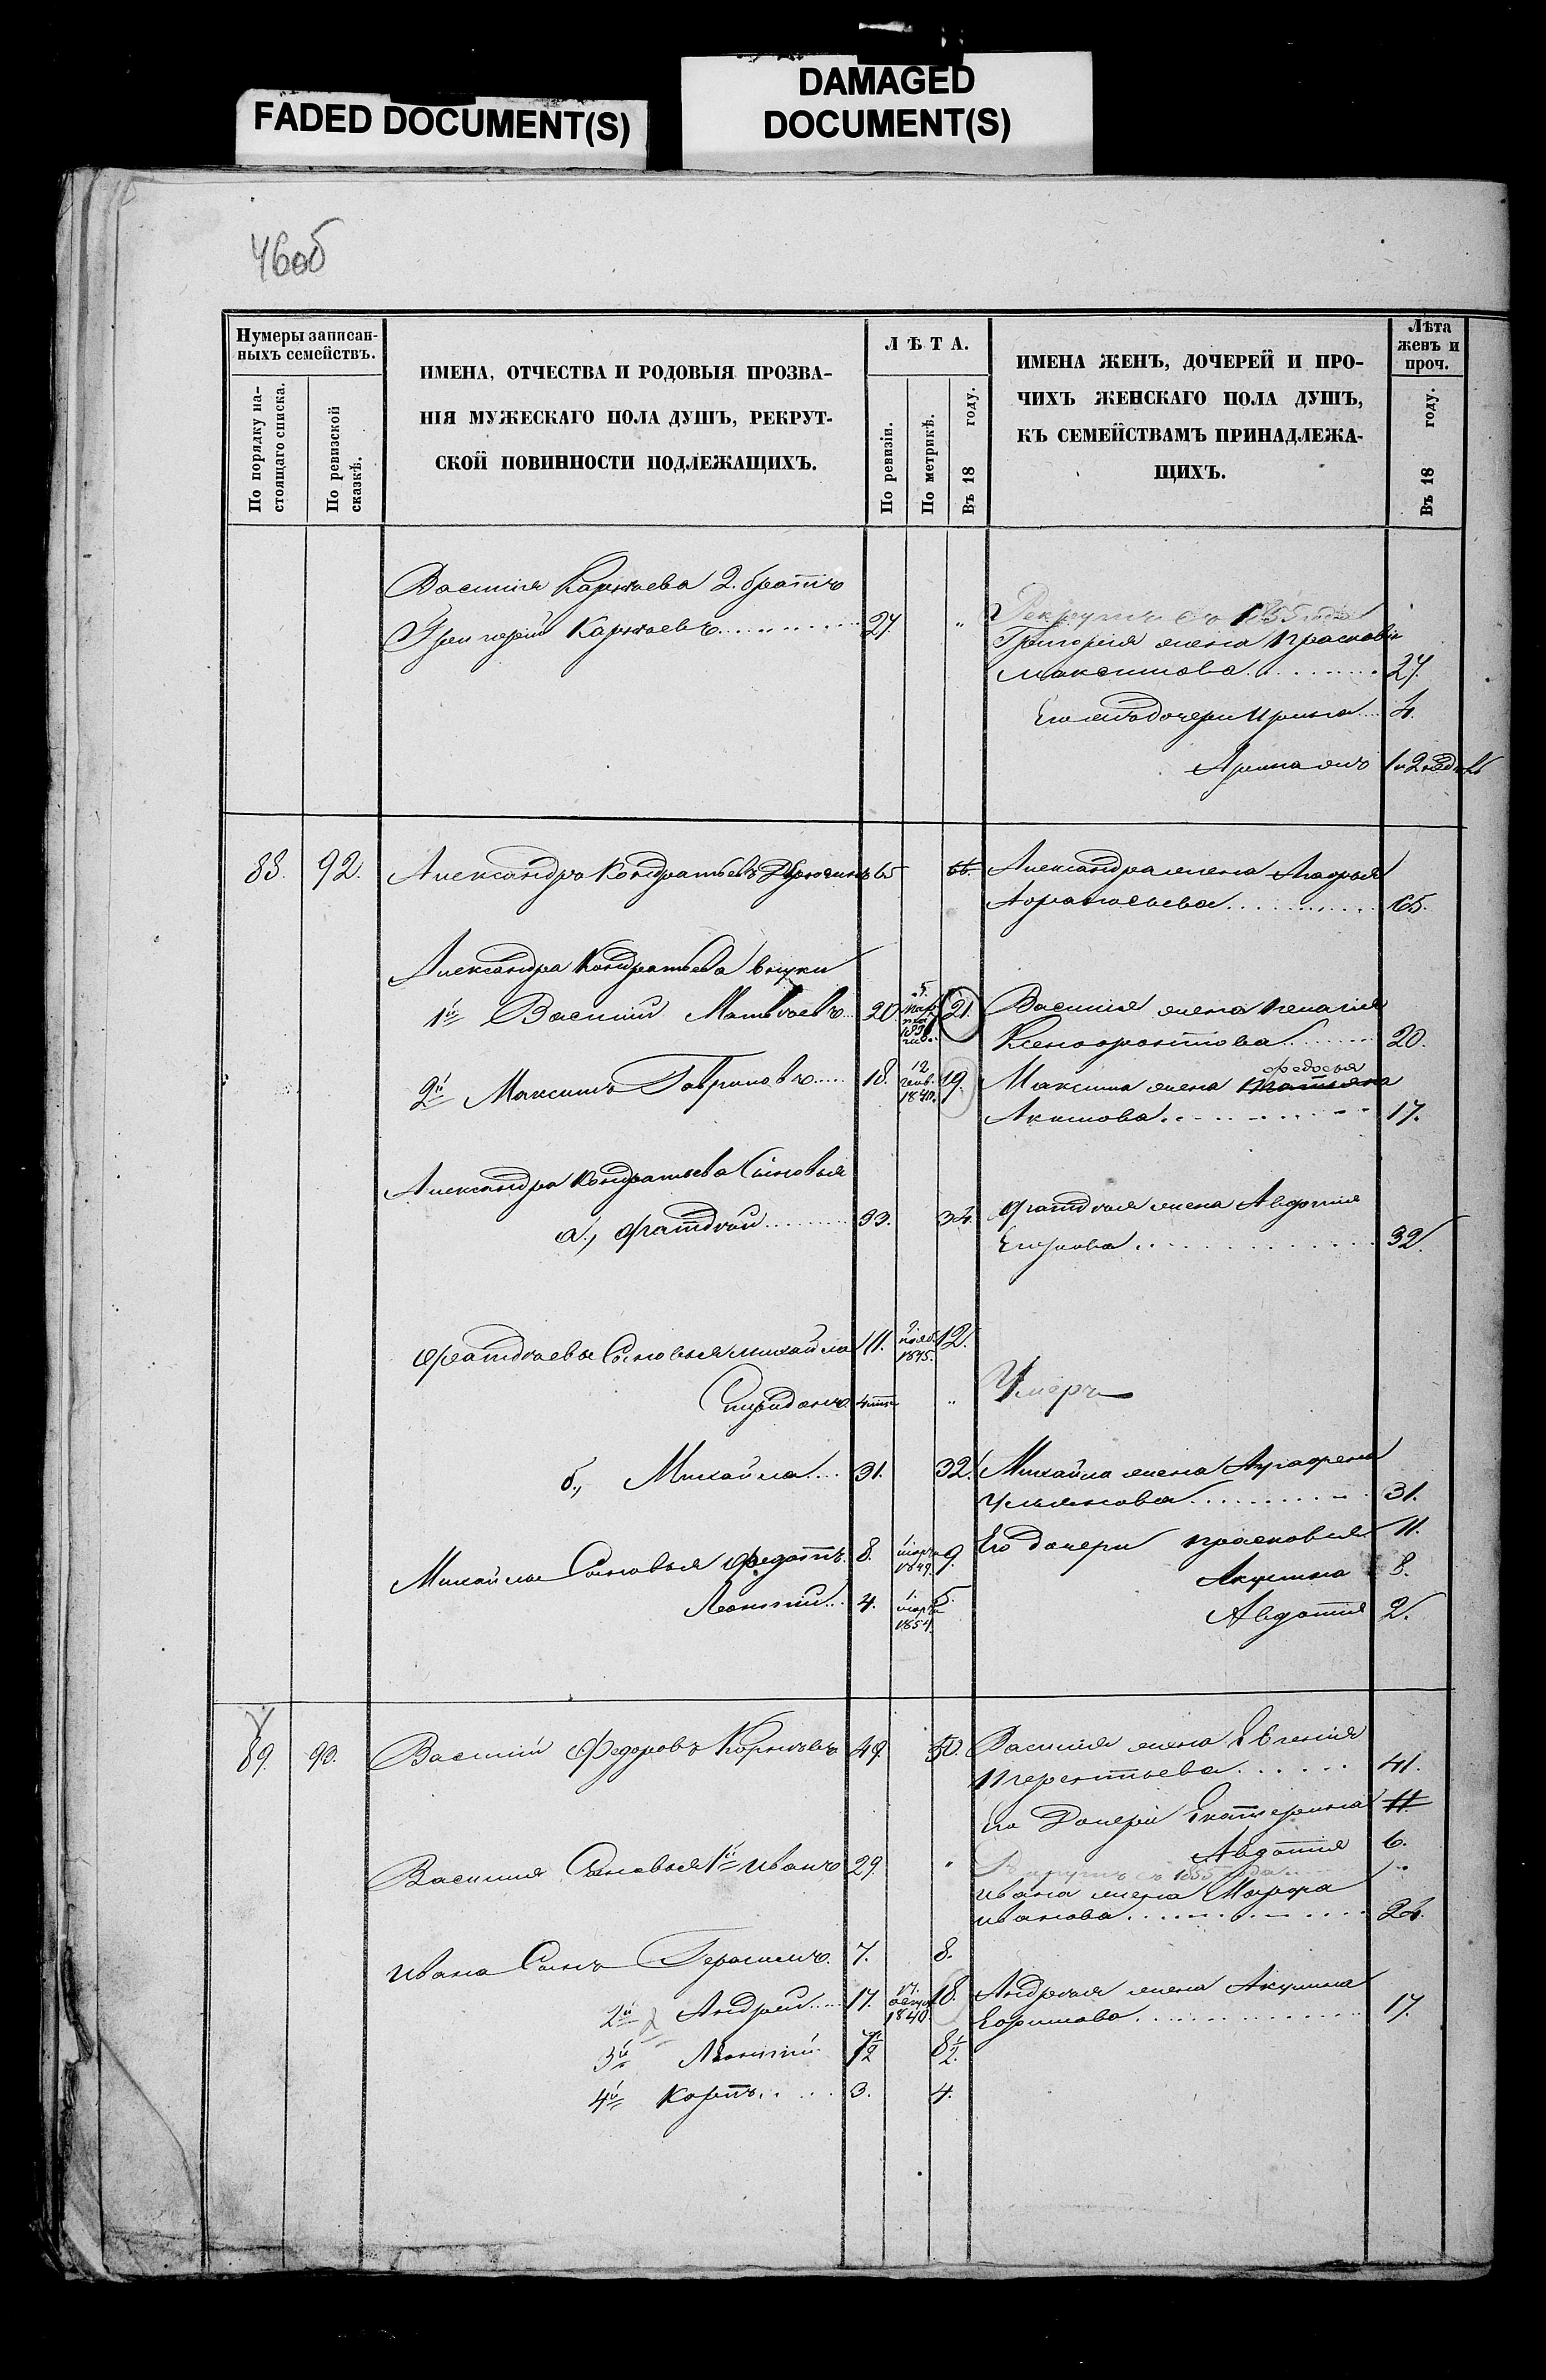 FADED DOCUMENT(S)
DAMAGED
DOCUMENT(S)
46об
Нумеры записан-
ныхъ семействъ.
По порядку на-
стоящаго списка.
По ревизской
сказкѣ.
ИМЕНА, ОТЧЕСТВА И РОДОВЫЯ ПРОЗВА-
НІЯ МУЖЕСКАГО ПОЛА ДУШЪ, РЕКРУТ-
СКОЙ ПОВИННОСТИ ПОДЛЕЖАЩИХЪ.
ЛѢТА.
По ревизіи.
По метрикѣ.
Въ 18 году.
ИМЕНА ЖЕНЪ, ДОЧЕРЕЙ И ПРО-
ЧИХЪ ЖЕНСКАГО ПОЛА ДУШЪ,
КЪ СЕМЕЙСТВАМЪ ПРИНАДЛЕЖА-
ЩИХЪ.
Лѣта
женъ и
проч.
Въ 18 году.
Василія 2. братъ
Григорій 27. "
Рекрутъ съ 1855 года
Григорія жена Прасковья
Максимова 27.
Его дочери Ирина 4.
Арина
88. 92. Александръ Кондратьевъ 65 66.
Александра жена Марья
Афанасьева 65.
Александра Кондратьева внуки
1й Василій Матвѣевъ 20. 21.
Василія жена Пелагія
Ксенофонтова 20.
2й Максимъ Гавриловъ 18. 12 генв. 1840. 19.
Максима жена Татьяна
Федосья
Акимова 17.
Александра Кондратьева Сыновья
а., Фатдѣй 33. 34.
Фатдѣя жена Авдотья
Егорова 32.
Фатдѣева Сыновья Михайла 11. нояб. 1845. 12.
Спиридонъ "
Умеръ
б., Михайла 31. 32.
Михайла жена Аграфена
Ульянова 31.
Михайлы Сыновья Федотъ 8. 1 марта 1849. 9.
Его дочери Прасковья 11.
Акулина 8.
Леонтій 4. 1. марта 5.
Авдотья 2.
89. 93. Василій Федоровъ 49. 50.
Василія жена Евгенія
Терентьева 41.
Его Дочери Екатерина 11.
Авдотья 6.
Василія Сыновья 1й Иванъ 29. "
Рекрутъ съ 1855 года
Ивана жена Марфа
Иванова
Ивана Сынъ Герасимъ 7. 8.
2й Андрей 17. 17. август. 1840. 18.
Андрея жена Акулина
Ефимова 17.
3й Леонтій 7½ 8½.
4й Карпъ 3. 4.